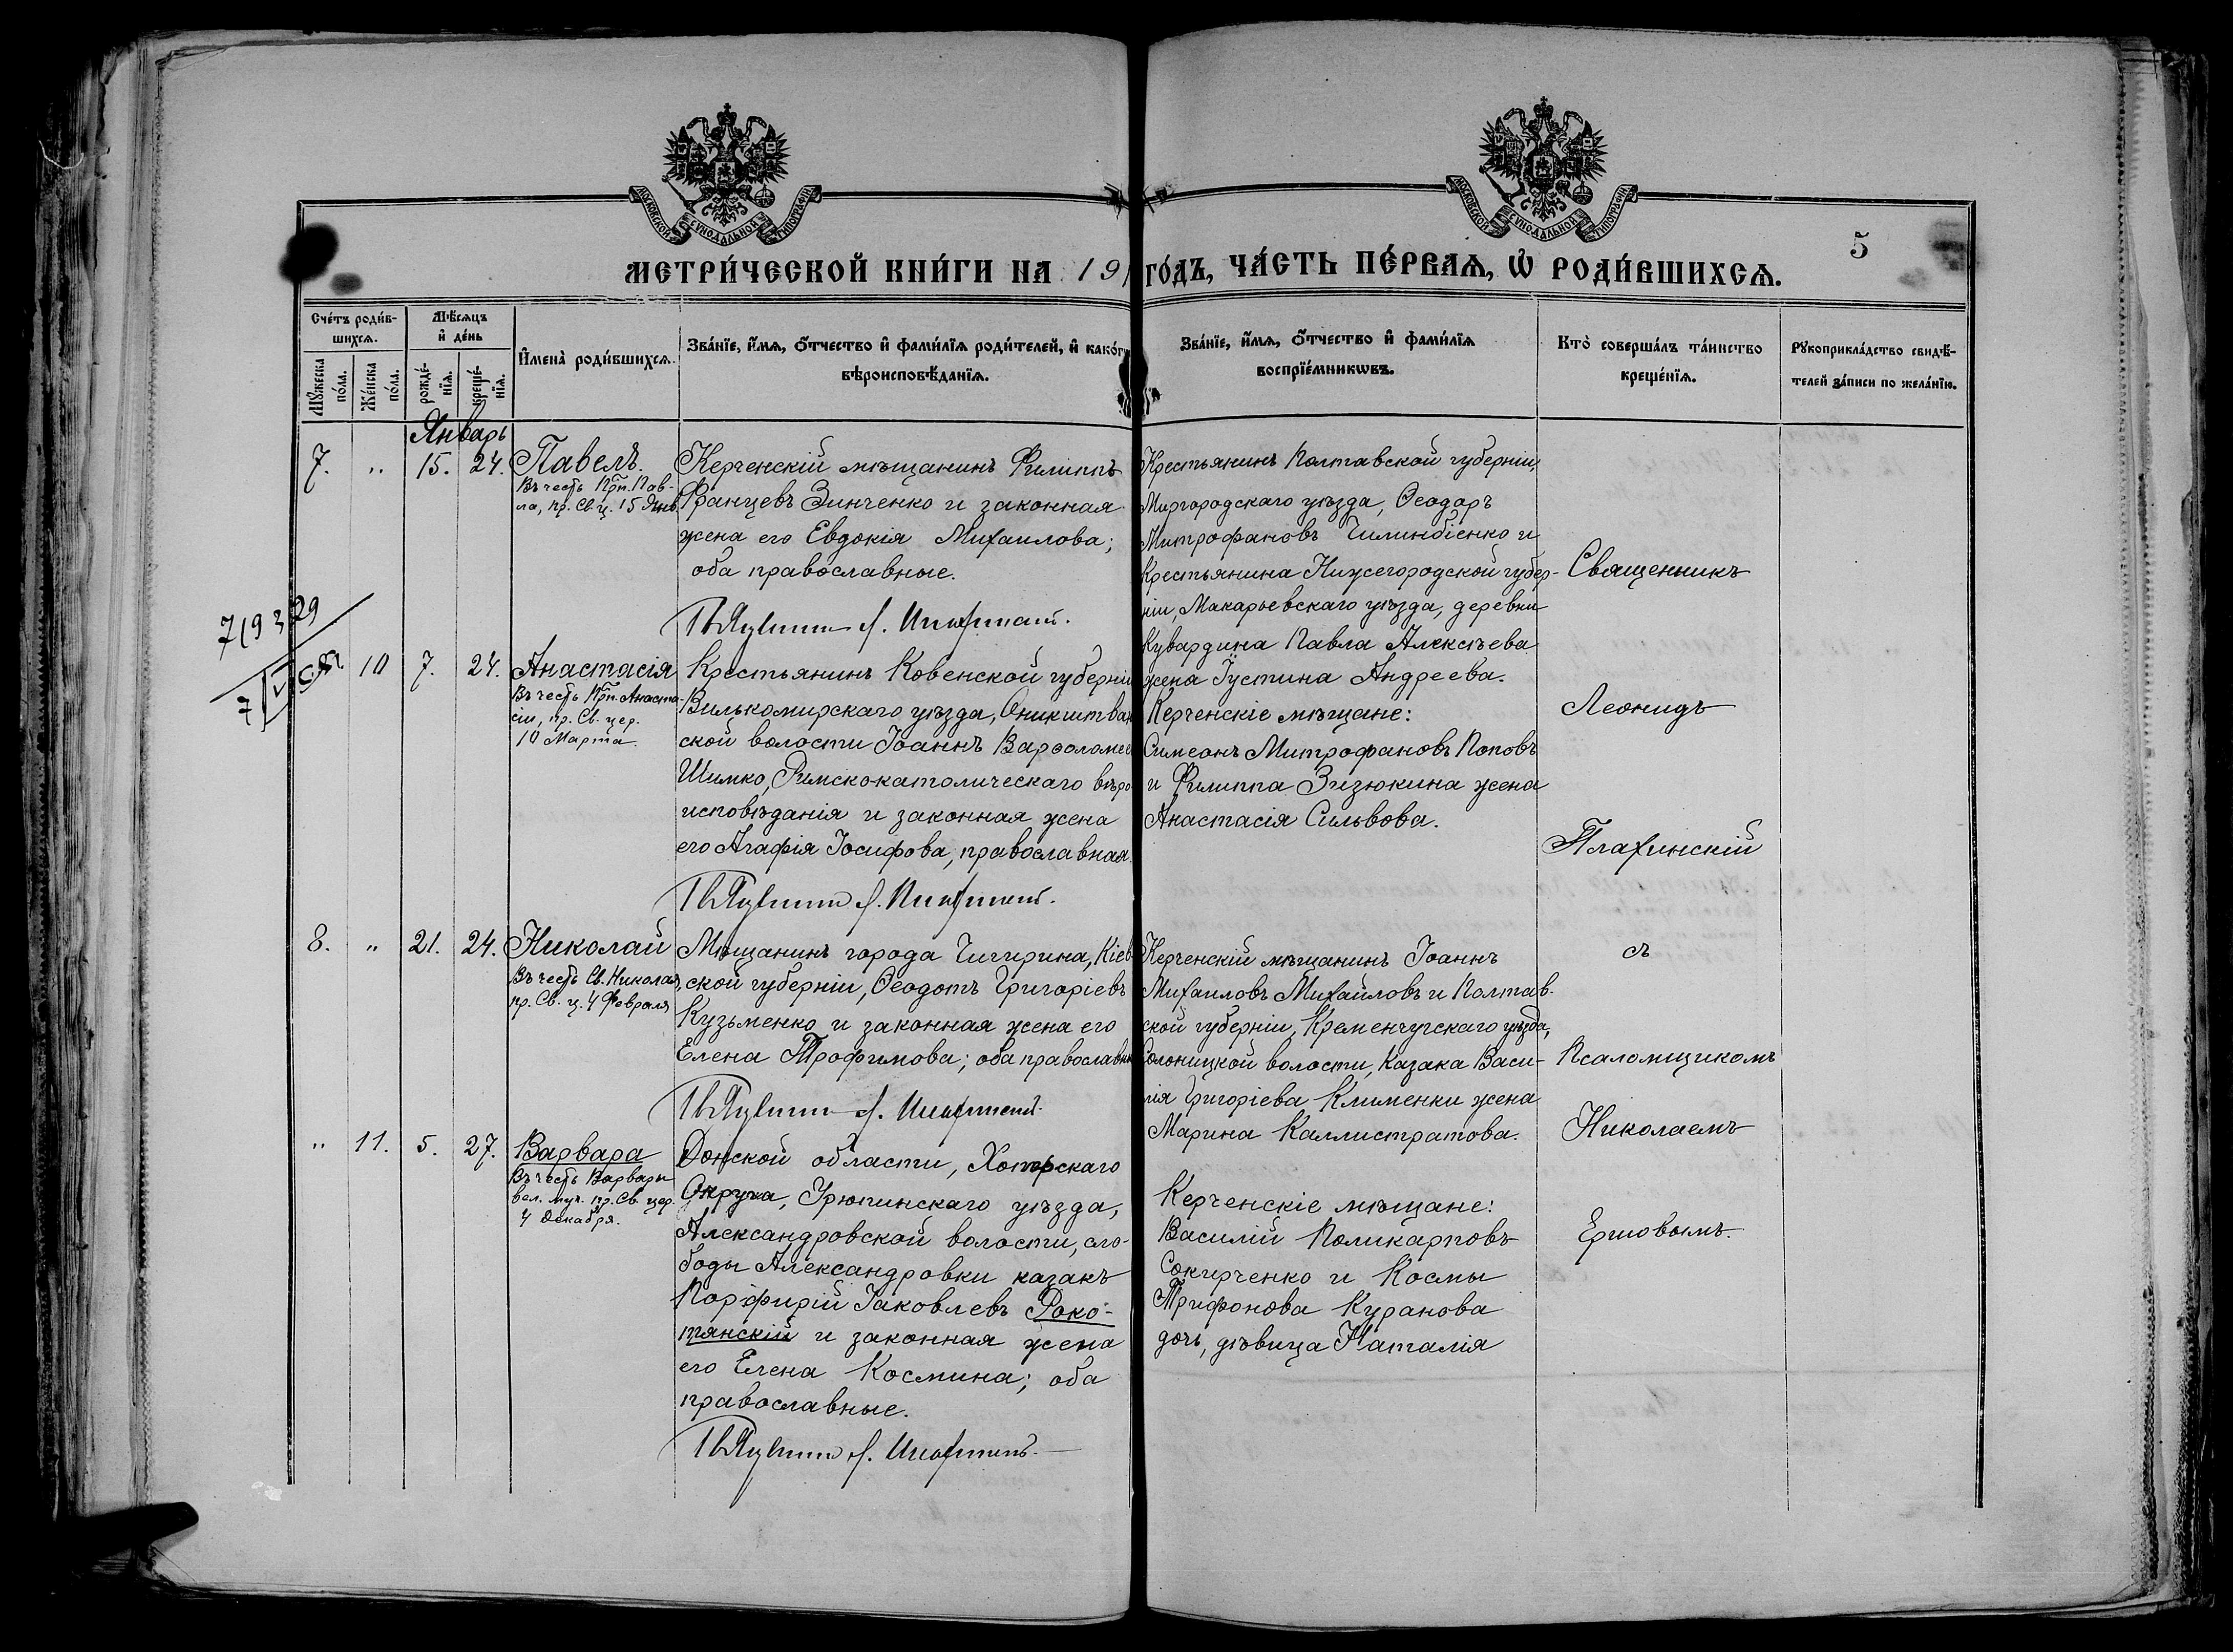 МОСКОВСКОЙ СѴНОДАЛЬНОЙ ТИПОГРАФІИ
МОСКОВСКОЙ СѴНОДАЛЬНОЙ ТИПОГРАФІИ
5
МЕТРИ́ЧЕСКОЙ КНИ́ГИ НА 191 ГО́ДЪ, ЧА́СТЬ ПЕ́РВАѦ, Ѡ҆ РОДИ́ВШИХСѦ.
Сче́тъ роди́в-
шихсѧ.
Мꙋ́жеска по́ла.
Же́нска по́ла.
Мѣ́сѧцъ
и҆ де́нь
рожде́-
нїѧ.
креще́-
нїѧ.
И҆мена̀ роди́вшихсѧ.
Зва́нїе, и҆́мѧ, ѻ҆́тчество и҆ фами́лїѧ роди́телей, и҆ како́гѡ
вѣроисповѣ́данїѧ.
Зва́нїе, и҆́мѧ, ѻ҆́тчество и҆ фами́лїѧ
воспрїе́мникѡвъ.
Кто̀ соверша́лъ та́инство
креще́нїѧ.
Рꙋкоприкла́дство свидѣ́-
телей за́писи по жела́нїю.
Январь
7. „ 15. 24. Павелъ.
Въ честь Прп. Пав-
ла, пр. Св. ц. 15 Янв.
Керченскій мѣщанинъ Филиппъ
Францевъ Зинченко и законная
жена его Евдокія Михаилова;
оба православные.
Крестьянинъ Полтавской губерніи,
Миргородскаго уѣзда, Ѳеодоръ
Митрофановъ и
крестьянина Нижегородской губер-
ніи, Макарьевскаго уѣзда, деревни
Кувардина Павла Алексѣева
жена Іустина Андреева.
7 19 3 29
10 7. 24. Анастасія
Въ честь Прп. Анаста-
сіи, пр. Св. цер.
10 Марта.
Крестьянинъ Ковенской губерніи
Вилькомирскаго уѣзда,
ской волости Іоаннъ Варѳоломеев
Шимко, Римско-католическаго вѣро
исповѣданія и законная жена
его Агафія Іосифова, православная.
Керченскіе мѣщане:
Симеонъ Митрофановъ Поповъ
и Филиппа Зизюкина жена
Анастасія Сильвова.
8. „ 21. 24. Николай
Въ честь Св. Николая,
пр. Св. ц. 4 Февраля
Мѣщанинъ города Чигирина, Кіев-
ской губерніи, Ѳеодотъ Григоріевъ
Кузьменко и законная жена его
Елена Трофимова; оба православные
Керченскій мѣщанинъ Іоаннъ
Михаиловъ Михайловъ и Полтав-
ской губерніи, Кременчугскаго уѣзда,
волости, казака Васи-
лія Григоріева Клименки жена
Марина Каллистратова.
„ 11. 5. 27. Варвара
Въ честь Варвары
вел. муч. пр. Св. цер.
4 Декабря.
Донской области, Хоперскаго
Округа, Урюпинскаго уѣзда,
Александровской волости, сло-
боды Александровки казакъ
Порфирій Іаковлевъ Роко-
тянскій и законная жена
его Елена Космина; оба
православные.
Керченскіе мѣщане:
Василій Поликарповъ
Сокирченко и Космы
Трифонова Куранова
дочь, дѣвица Наталія
Священникъ
Леонидъ
Плахинскій
съ
Псаломщикомъ
Николаемъ
Ершовымъ.